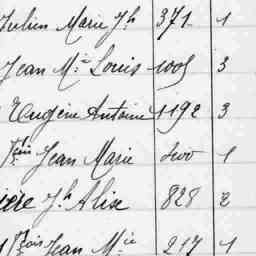 Julien Marie Jh 371 1
Jean Mie Louis 1005 3
Eugène Antoine 1192 3
Fçois Jean Marie 1
Jh Alixe 828 2
Fçois Jean Mie 217 1